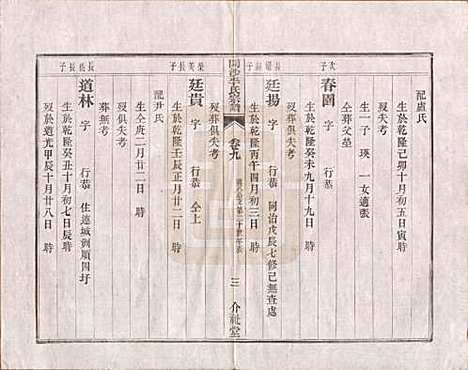 配盧氏
生於乾隆己卯十月初五日寅時
次子
春園 字 行恭
生於乾隆癸未九月十九日 時
全葬父塋
生一子 瑛 一女適張
長子
廷揚 字 行恭 同治戊辰七修已無查處
生於乾隆丙午四月初三日 時
歿葬俱失考
開沙李氏宗譜
卷九
三
介祉堂
榮美長子
廷貴 字 行恭 仝上
生於乾隆壬辰正月廿二日 時
歿葬俱失考
配尹氏
生全庚二月廿二日 時
歿俱失考
長兆長子
道林 字 行恭 住蓮城洲順四圩
生於乾隆癸丑十月初七日辰時
歿於道光甲辰十月廿八日 時
葬無考